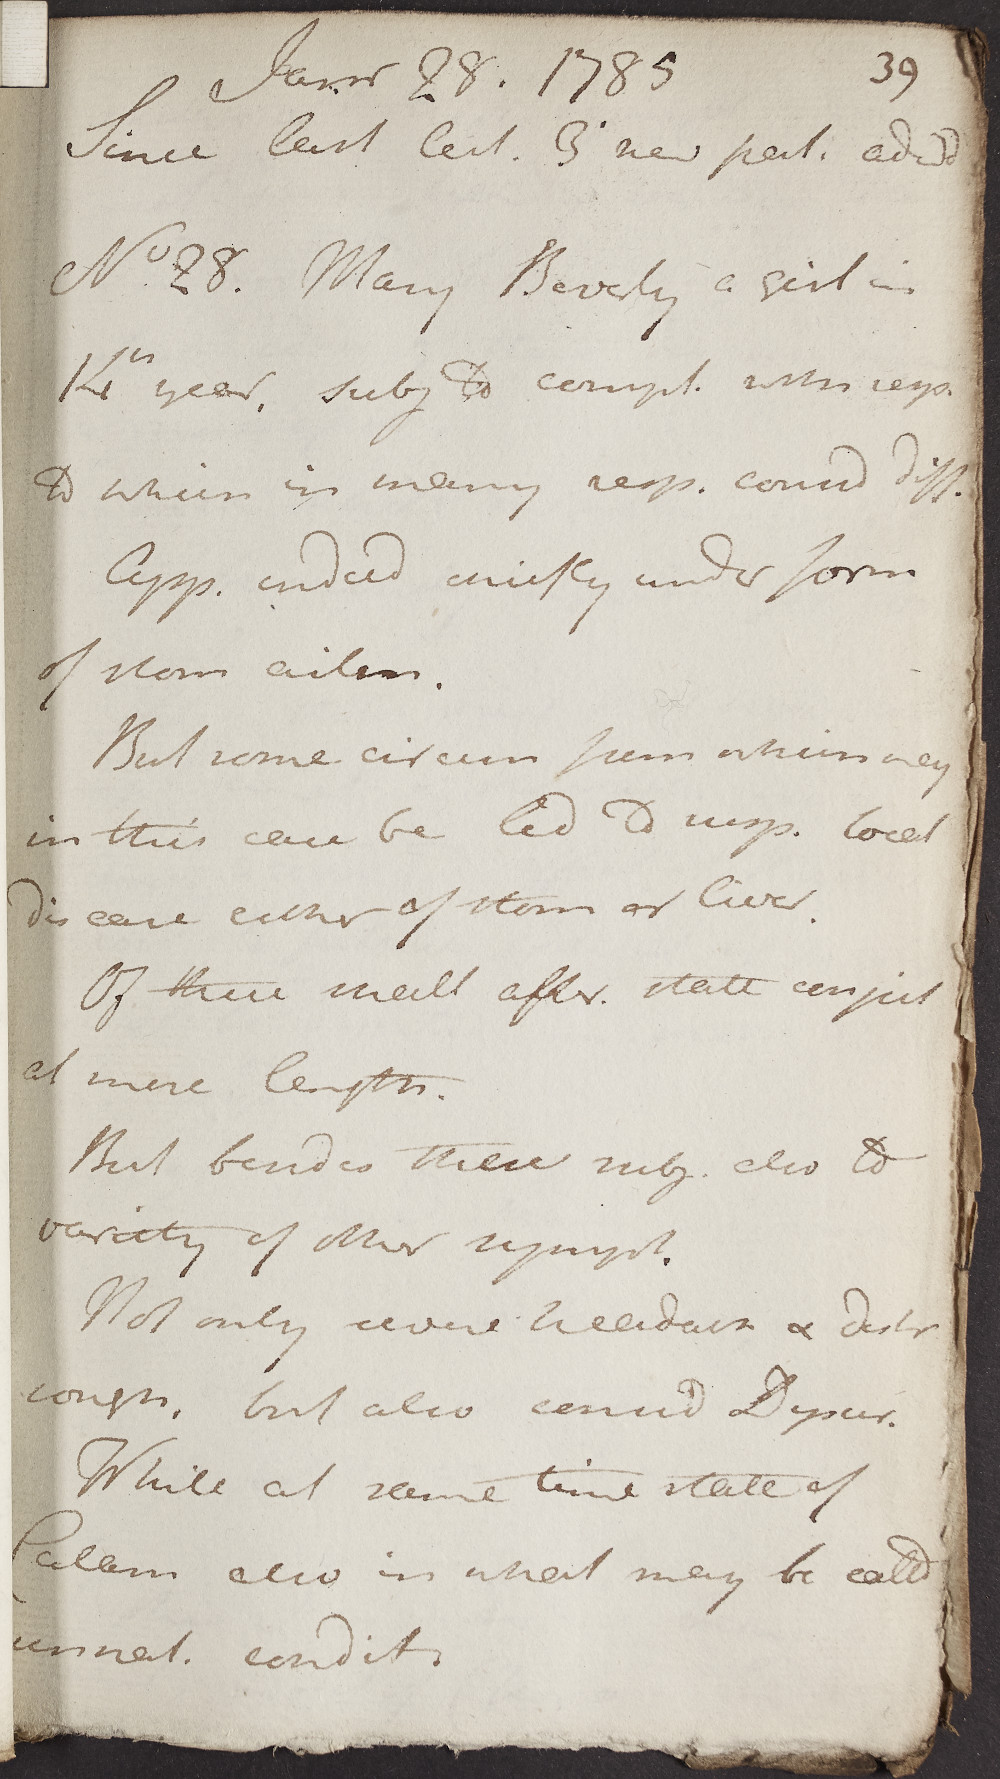 Janr 28. 1785 39
Since last lect. 3 new pat. admd
No 28. Mary Beverly a girl in
14th year, subj to compl. with resp.
to which in many resp. consid diff.
App. indeed chiefly under form
of stom ailm.
But some circum from which may
in this case be led to susp. local
disease either of stom or liver.
Of these shall after. state conject
at more length.
But besides these subj. also to
variety of other sympt.
Not only severe headach & distr
cough, but also consid Dyspn.
While at same time state of
Catam also in what may be calld
unnat. condit.